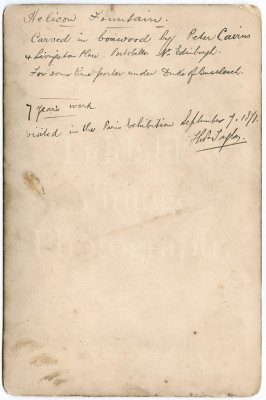 Helicon Fountain.
Carved in boxwood by Peter Cairns
4 Livingston Place. Portobello Nr. Edinburgh.
For some time porter under Duke of Buccleuch.
7 years work
in the Paris Exhibition September 7. 1878.
Taylor